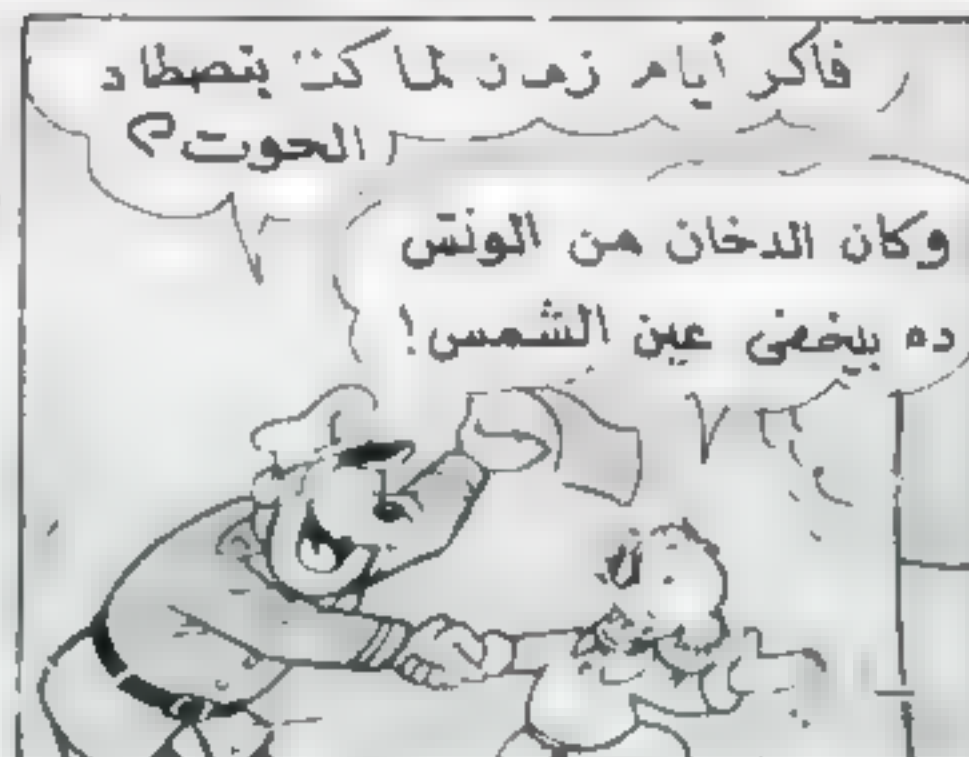 فاكر أيام زمان لما كنت بتصطاد
الحوت؟
وكان الدخان من الونش
ده بيخفى عين الشمس!